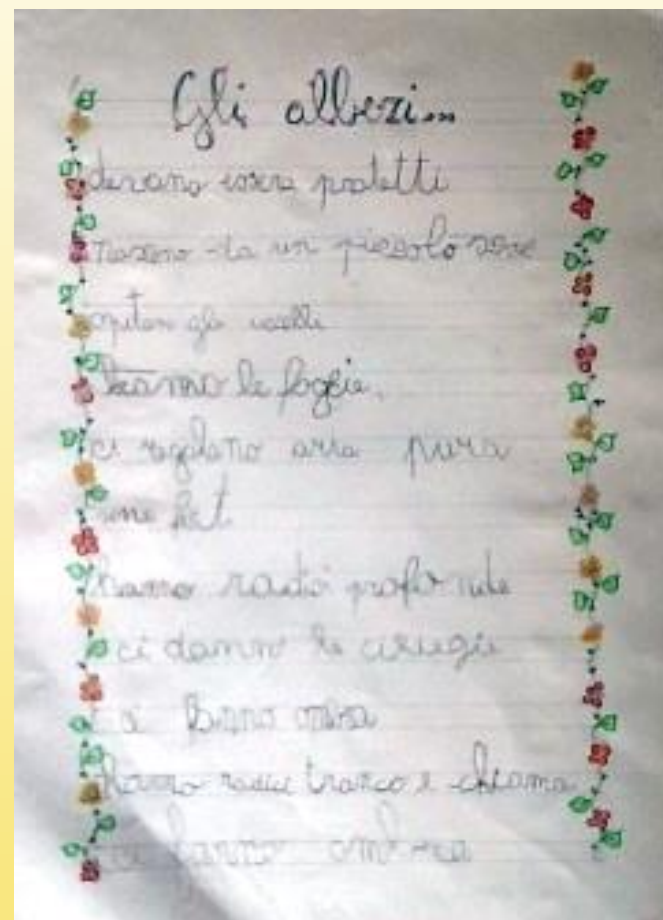 Gli alberi...
devono essere protetti
nascono da un piccolo seme
ospitano gli uccelli
hanno le foglie.
ci regalano aria pura
hanno radici profonde
ci danno le ciliegie
ci fanno ombra
hanno radici tronco e chioma
ci fanno ombra